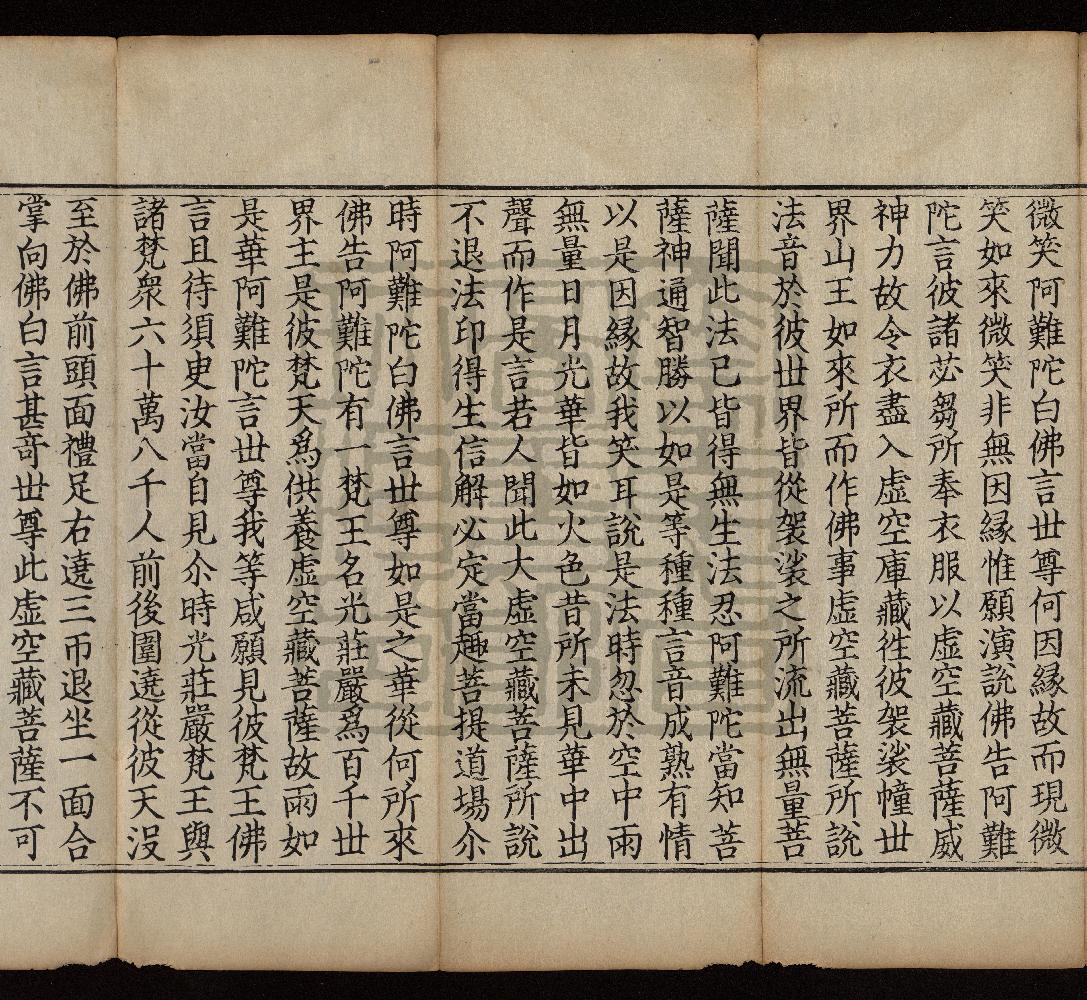 微笑阿難陀白佛言世尊何因緣故而現微
笑如來微笑非無因緣惟願演說佛告阿難
陀言彼諸苾芻所奉衣服以虛空藏菩薩威
神力故令衣盡入虛空庫藏徃彼袈裟幢世
界山王如來所而作佛事虛空藏菩薩所說
法音於彼世界皆從袈裟之所流出無量菩
薩聞此法已皆得無生法忍阿難陀當知菩
薩神通智勝以如是等種種言音成熟有情
以是因緣故我笑耳說是法時忽於空中雨
無量日月光華皆如火色昔所未見華中出
聲而作是言若人聞此大虛空藏菩薩所說
不退法印得生信解必定當趣菩提道場尒
時阿難陀白佛言世尊如是之華從何所來
佛告阿難陀有一梵王名光莊嚴爲百千世
界主是彼梵天爲供養虛空藏菩薩故雨如
是華阿難陀言世尊我等咸願見彼梵王佛
言且待須臾汝當自見尒時光莊嚴梵王與
諸梵衆六十萬八千人前後圍遶從彼天沒
至於佛前頭面禮足右遶三帀退坐一面合
掌向佛白言甚奇世尊此虛空藏菩薩不可